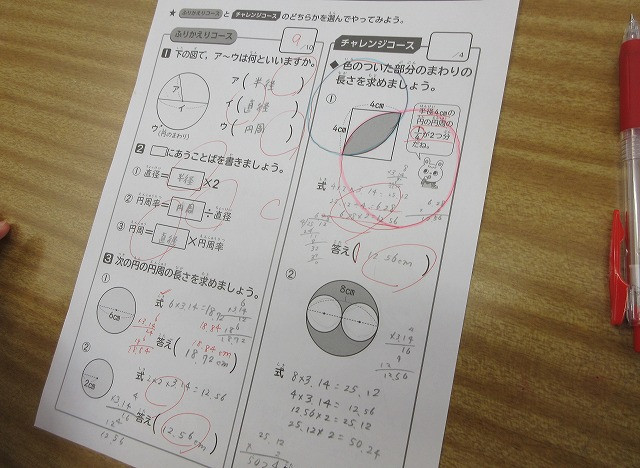 ★ ふりかえりコース と チャレンジコース のどちらかを選んでやってみよう。
ふりかえりコース
9/10
1 下の図で，ア〜ウは何といいますか。
ア
イ
ウ(円のまわり)
ア(半径)
イ(直径)
ウ(円周)
2 □にあうことばを書きましょう。
① 直径＝半径×2
② 円周率＝円周÷直径
③ 円周＝直径×円周率
3 次の円の円周の長さを求めましょう。
①
6cm
式 6×3.14=18.72
18.84
答え(18.72cm)
18.84cm
②
2cm
式 2×2×3.14=12.56
答え(12.56cm)
チャレンジコース
/4
◆ 色のついた部分のまわりの
長さを求めましょう。
①
4cm
4cm
半径4cmの
円の円周の
1/4が2つ分
だね。
式
答え(12.56cm)
②
8cm
式 8×3.14=25.12
4×3.14=12.56
12.56×2=25.12
25.12×2=50.24